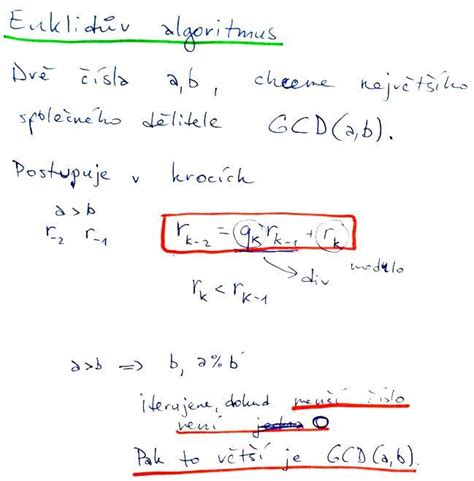 Euklidův algoritmus
Dvě čísla a,b, chceme největšího
společného dělitele GCD(a,b).
Postupuje v krocích
a>b
r₋₂ r₋₁
rₖ₋₂ = qₖ rₖ₋₁ + rₖ
div modulo
rₖ < rₖ₋₁
a>b ⇒ b, a%b
iterujeme, dokud menší číslo
není 0
Pak to větší je GCD(a,b).